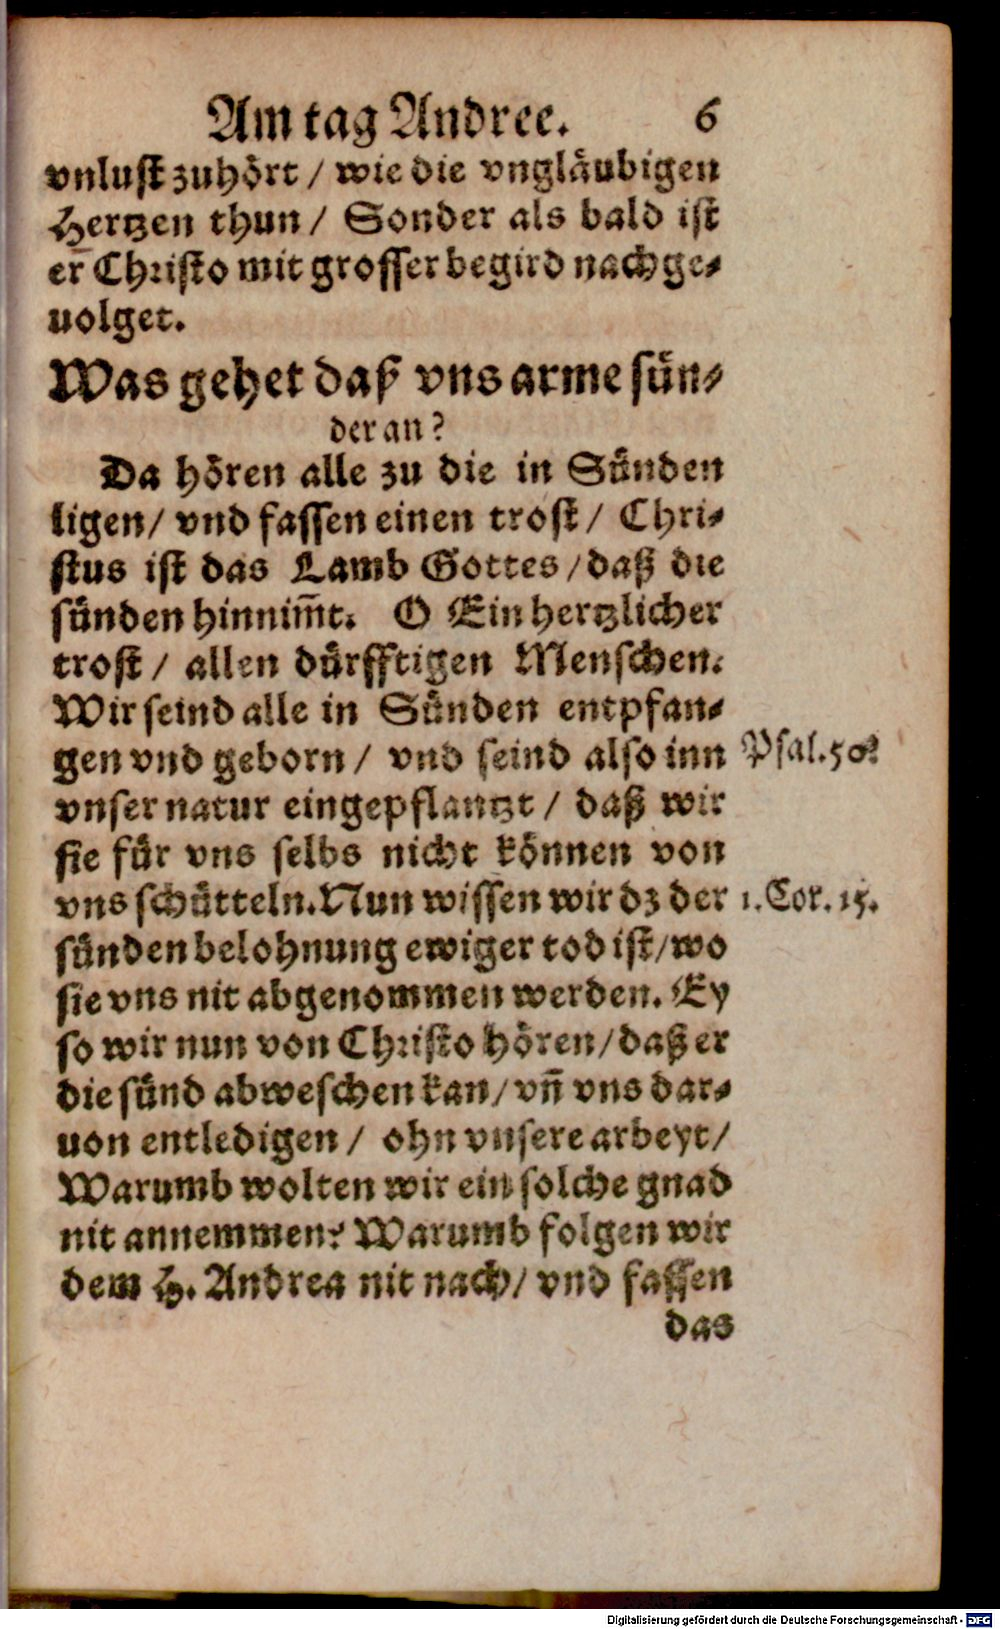 Am tag Andree. 6
vnlust zuhört / wie die vngläubigen
Hertzen thun / Sonder als bald ist
er Christo mit grosser begird nachge-
uolget.
Was gehet daß vns arme sün-
der an?
Da hören alle zu die in Sünden
ligen / vnd fassen einen trost / Chri-
stus ist das Lamb Gottes / daß die
sünden hinnim̅t. O Ein hertzlicher
trost / allen dürfftigen Menschen.
Wir seind alle in Sünden entpfan-
gen vnd geborn / vnd seind also inn Psal. 50.
vnser natur eingepflantzt / daß wir
sie für vns selbs nicht können von
vns schütteln. Nun wissen wir dz der 1. Cor. 15.
sünden belohnung ewiger tod ist / wo
sie vns nit abgenommen werden. Ey
so wir nun von Christo hören / daß er
die sünd abweschen kan / vn̅ vns dar-
uon entledigen / ohn vnsere arbeyt /
Warumb wolten wir ein solche gnad
nit annemmen? Warumb folgen wir
dem H. Andrea nit nach / vnd fassen
das
Digitalisierung gefördert durch die Deutsche Forschungsgemeinschaft - DFG